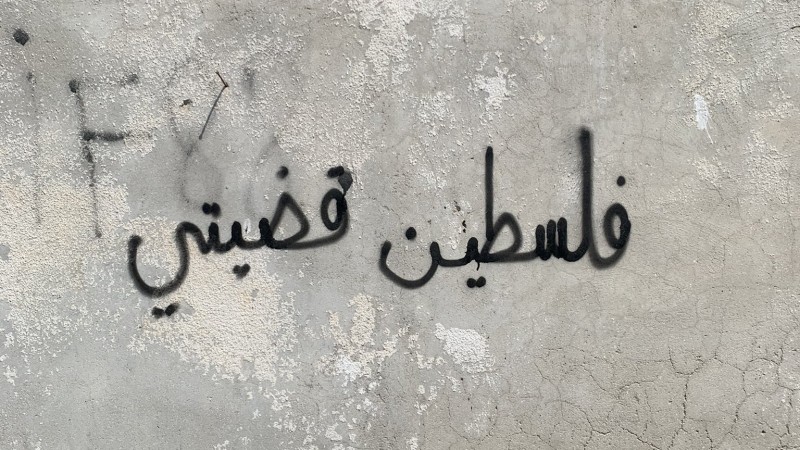 فلسطين قضيتي